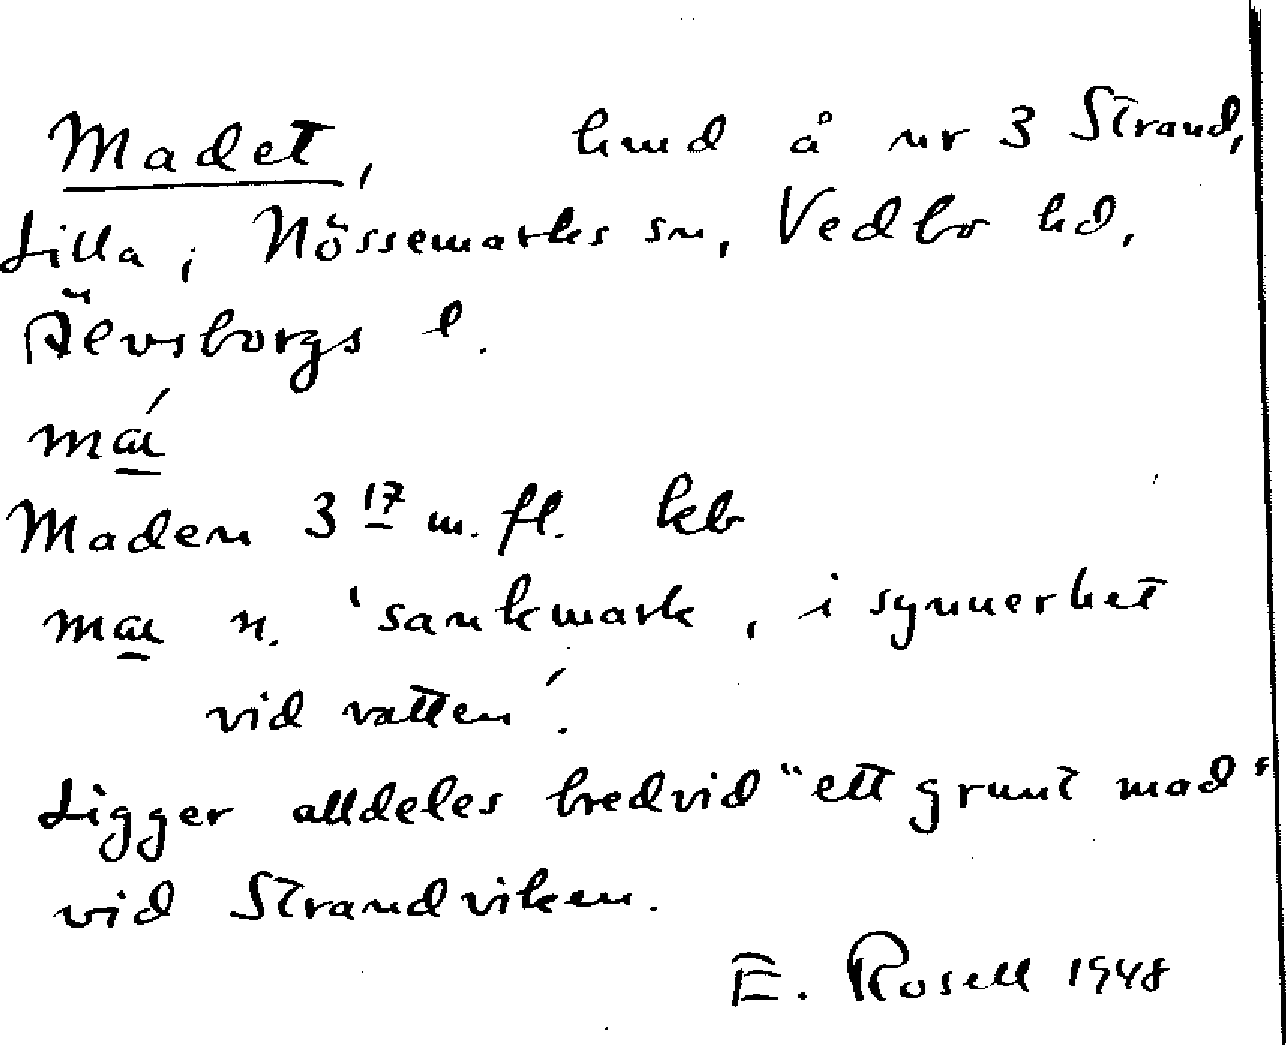 Madet, hmd å nr 3 Strand,
Lilla, i Nössemarks sn, Vedbo hd,
Älvsborgs l.
máɩ
Maden 3 17 m. fl. kb
maɩ n. 'sankmark, i synnerhet
vid vatten'.
Ligger alldeles bredvid "ett grunt mad"
vid Strandviken.
E. Rosell 1948